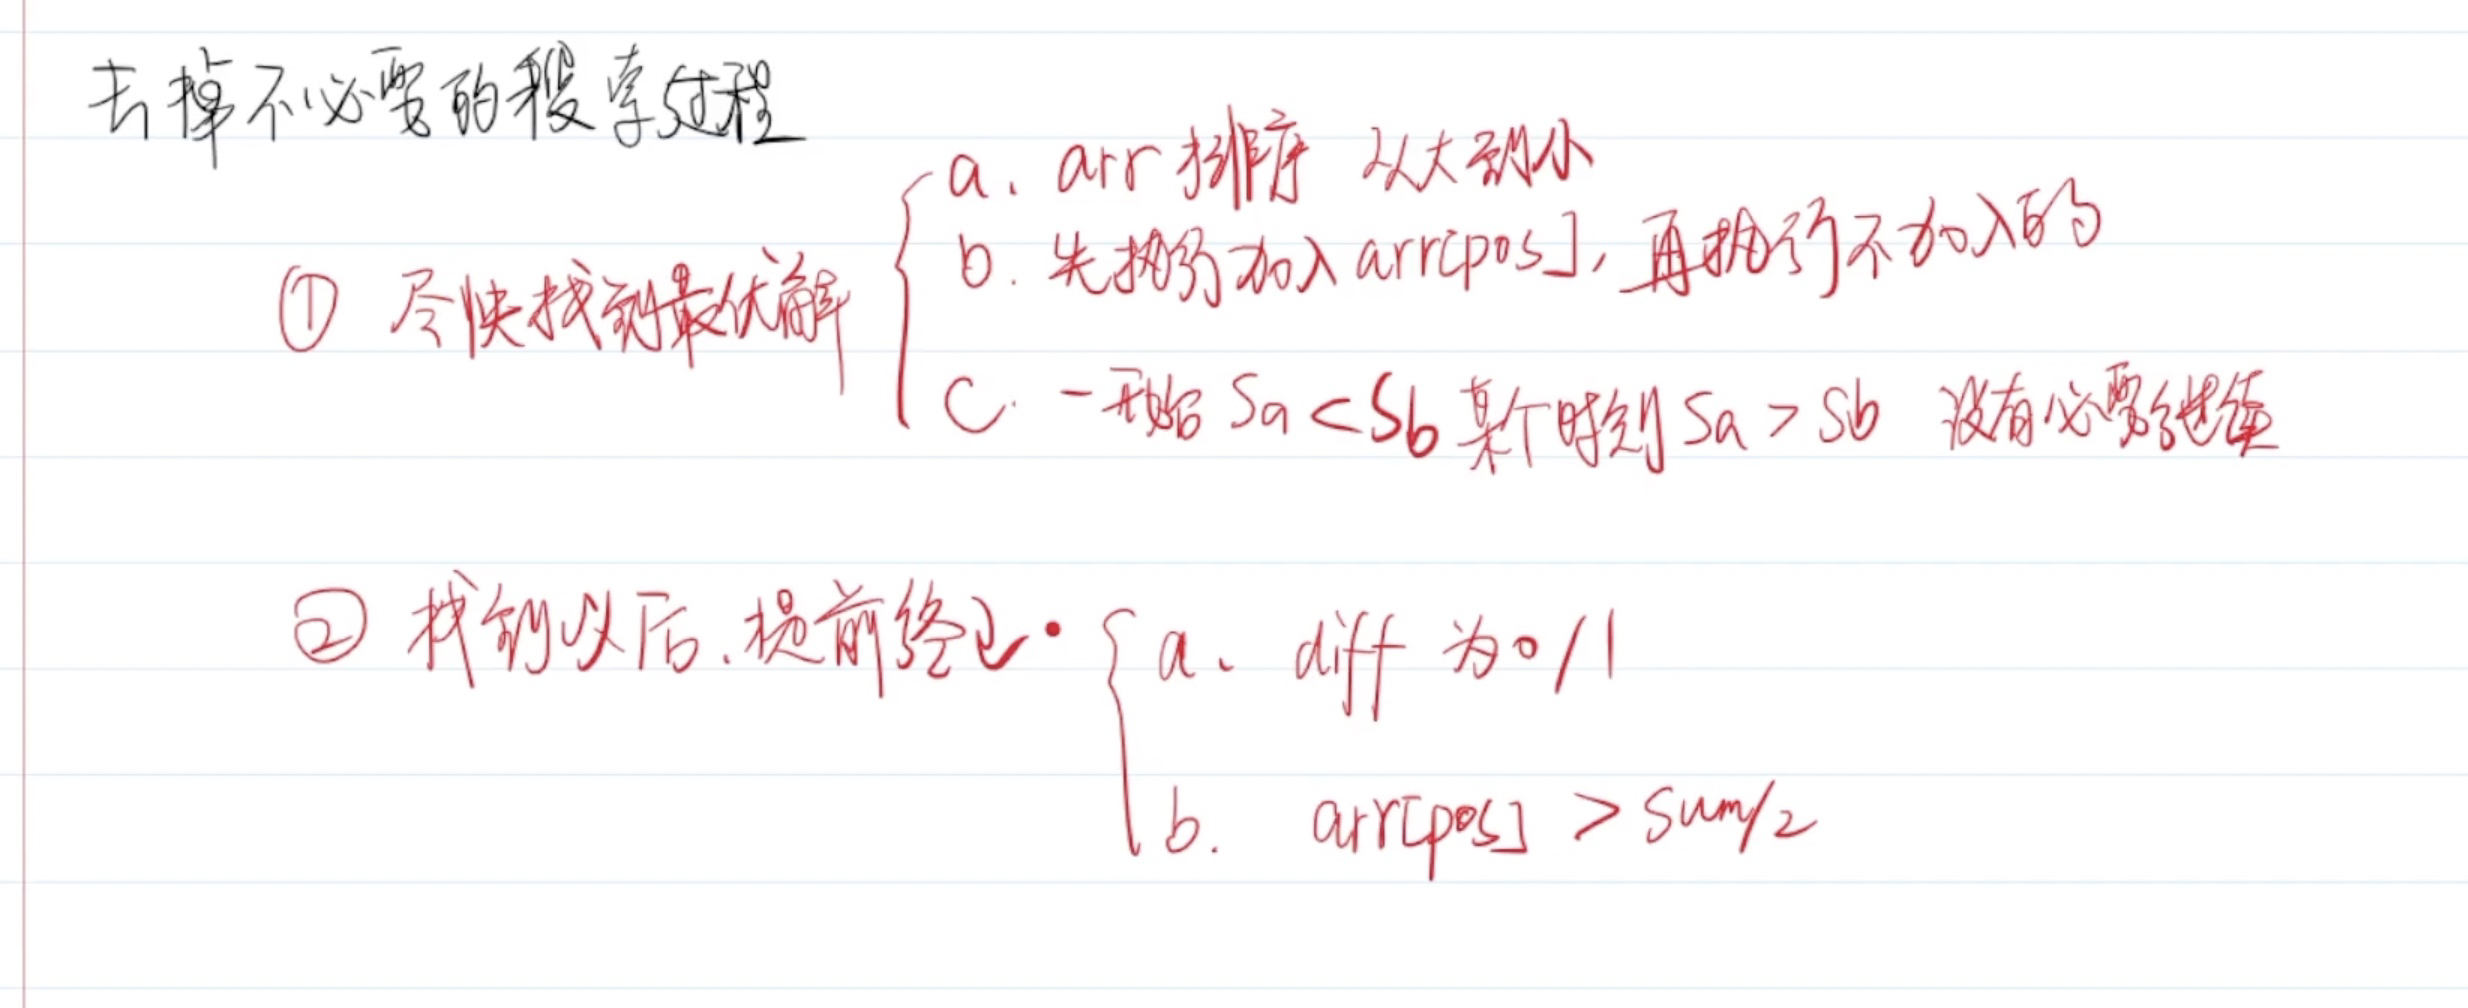 去掉不必要的搜索过程
a. arr 排序 从大到小
b. 先执行加入 arr[pos], 再执行不加入的
① 尽快找到最优解
c. 一开始 Sa < Sb 某个时刻 Sa > Sb 没有必要继续
② 找到以后.提前终止. a. diff 为 0/1
b. arr[pos] > sum/2